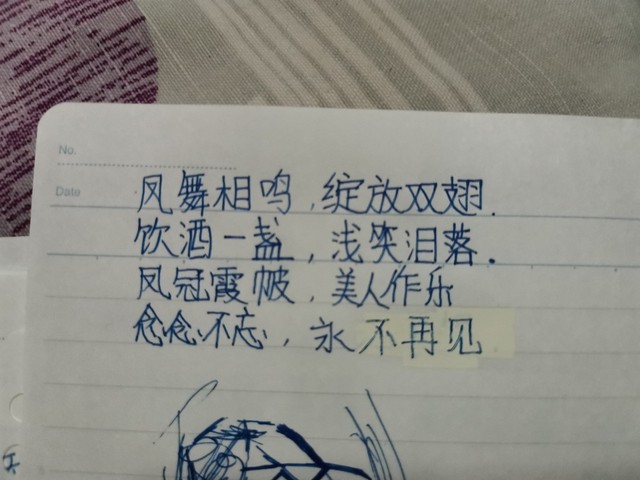 No.
Date
凤舞相鸣,绽放双翅.
饮酒一盏,浅笑泪落.
凤冠霞帔,美人作乐
念念不忘,永不再见